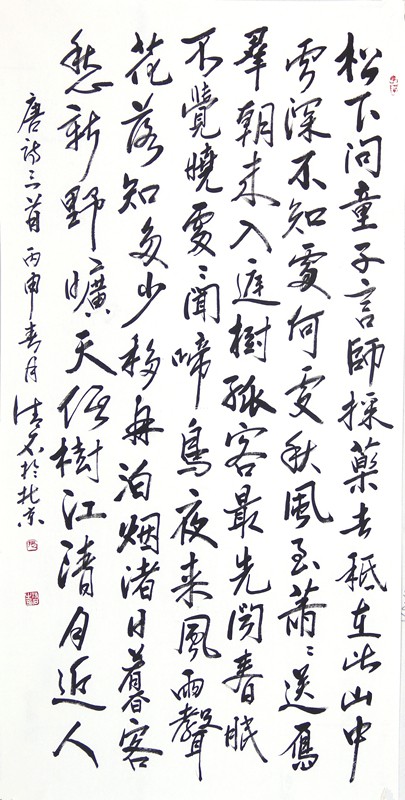 松下問童子言師採藥去秖在此山中
雲深不知處何處秋風至蕭〻送雁
羣朝来入庭樹孤客最先聞春眠
不覺曉處〻聞啼鳥夜来風雨聲
花落知多少移舟泊烟渚日暮客
愁新野曠天低樹江清月近人
唐詩三首丙申春月清於北京